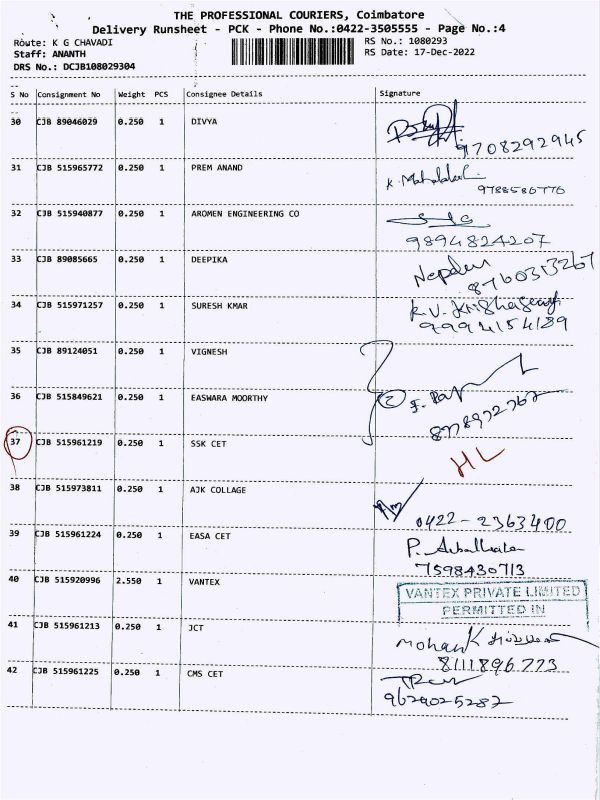 THE PROFESSIONAL COURIERS, Coimbatore
Delivery Runsheet - PCK - Phone No.:0422-3505555 - Page No.:4
Route: K G CHAVADI
RS No.: 1080293
Staff: ANANTH
RS Date: 17-Dec-2022
DRS No.: DCJB108029304
S No Consignment No Weight PCS Consignee Details Signature
30 CJB 89046029 0.250 1 DIVYA
9708292945
31 CJB 515965772 0.250 1 PREM ANAND
9788586776
32 CJB 515940877 0.250 1 AROMEN ENGINEERING CO
9894824207
33 CJB 89085665 0.250 1 DEEPIKA
34 CJB 515971257 0.250 1 SURESH KMAR
9994154189
35 CJB 89124051 0.250 1 VIGNESH
36 CJB 515849621 0.250 1 EASWARA MOORTHY
2
37 CJB 515961219 0.250 1 SSK CET
HL
38 CJB 515973811 0.250 1 AJK COLLAGE
0422-2363400
39 CJB 515961224 0.250 1 EASA CET
7598430713
40 CJB 515920996 2.550 1 VANTEX
VANTEX PRIVATE LIMITED
PERMITTED IN
41 CJB 515961213 0.250 1 JCT
Mohan K
8111896773
42 CJB 515961225 0.250 1 CMS CET
9629025287